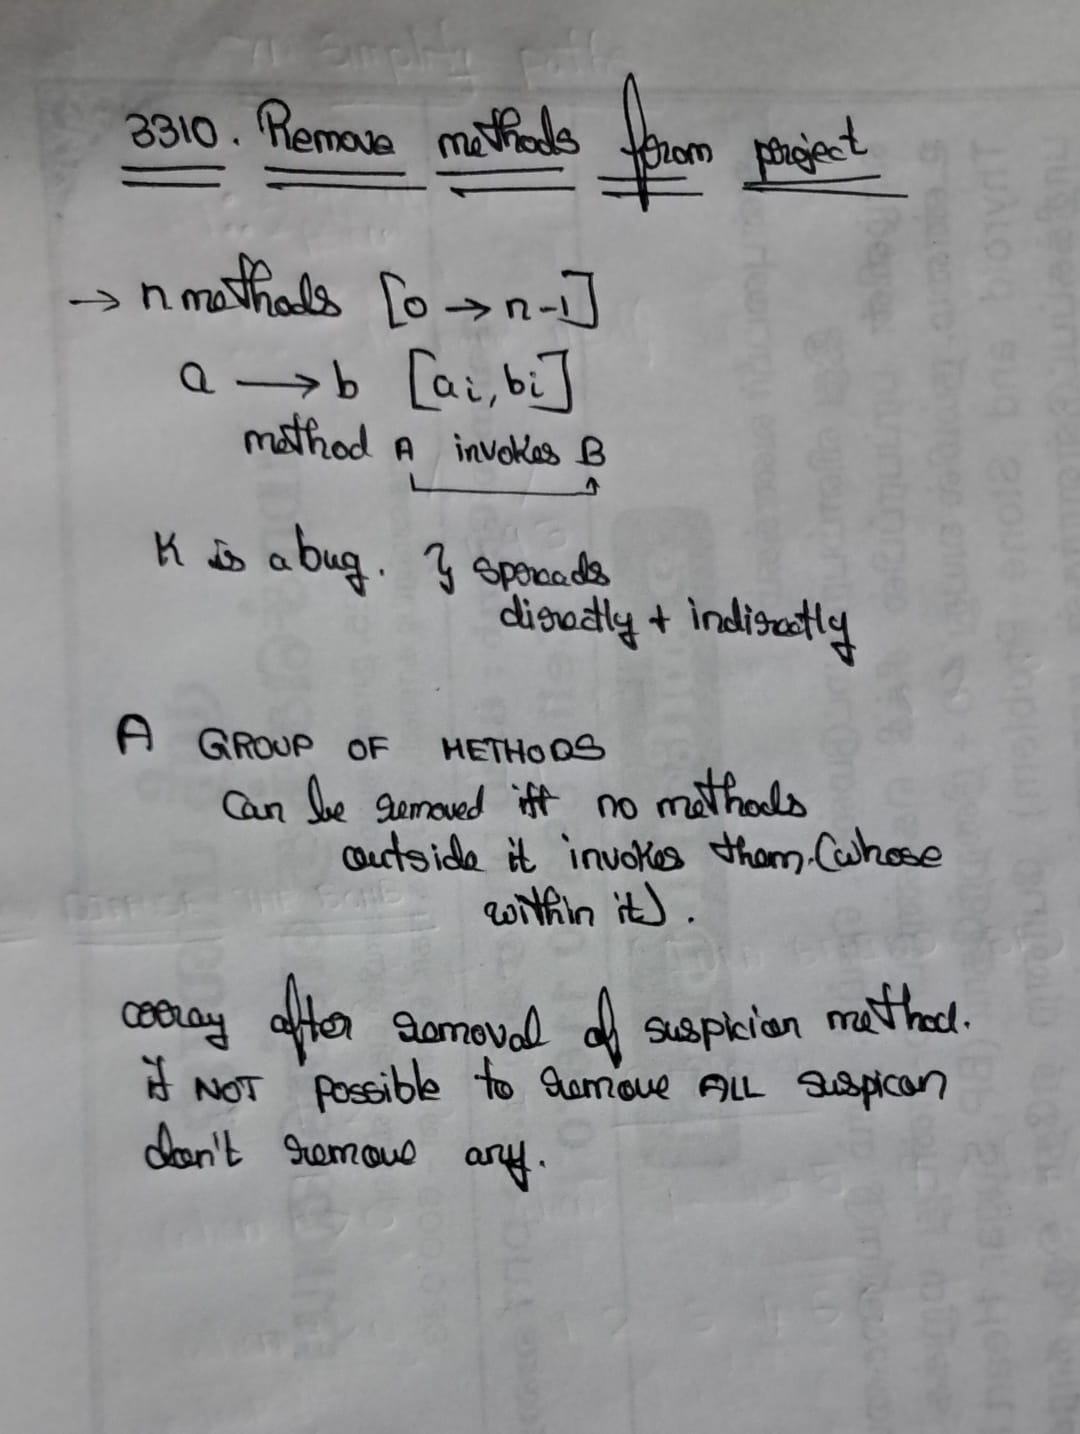 3310. Remove methods from project
→ n methods [0 → n-1]
a → b [ai, bi]
method A invokes B
K is a bug. } spreads
directly + indirectly
A GROUP OF METHODS
Can be removed iff no methods
outside it invokes them. (whose
within it).
array after removal of suspician method.
if NOT possible to remove ALL suspican
don't remove any.